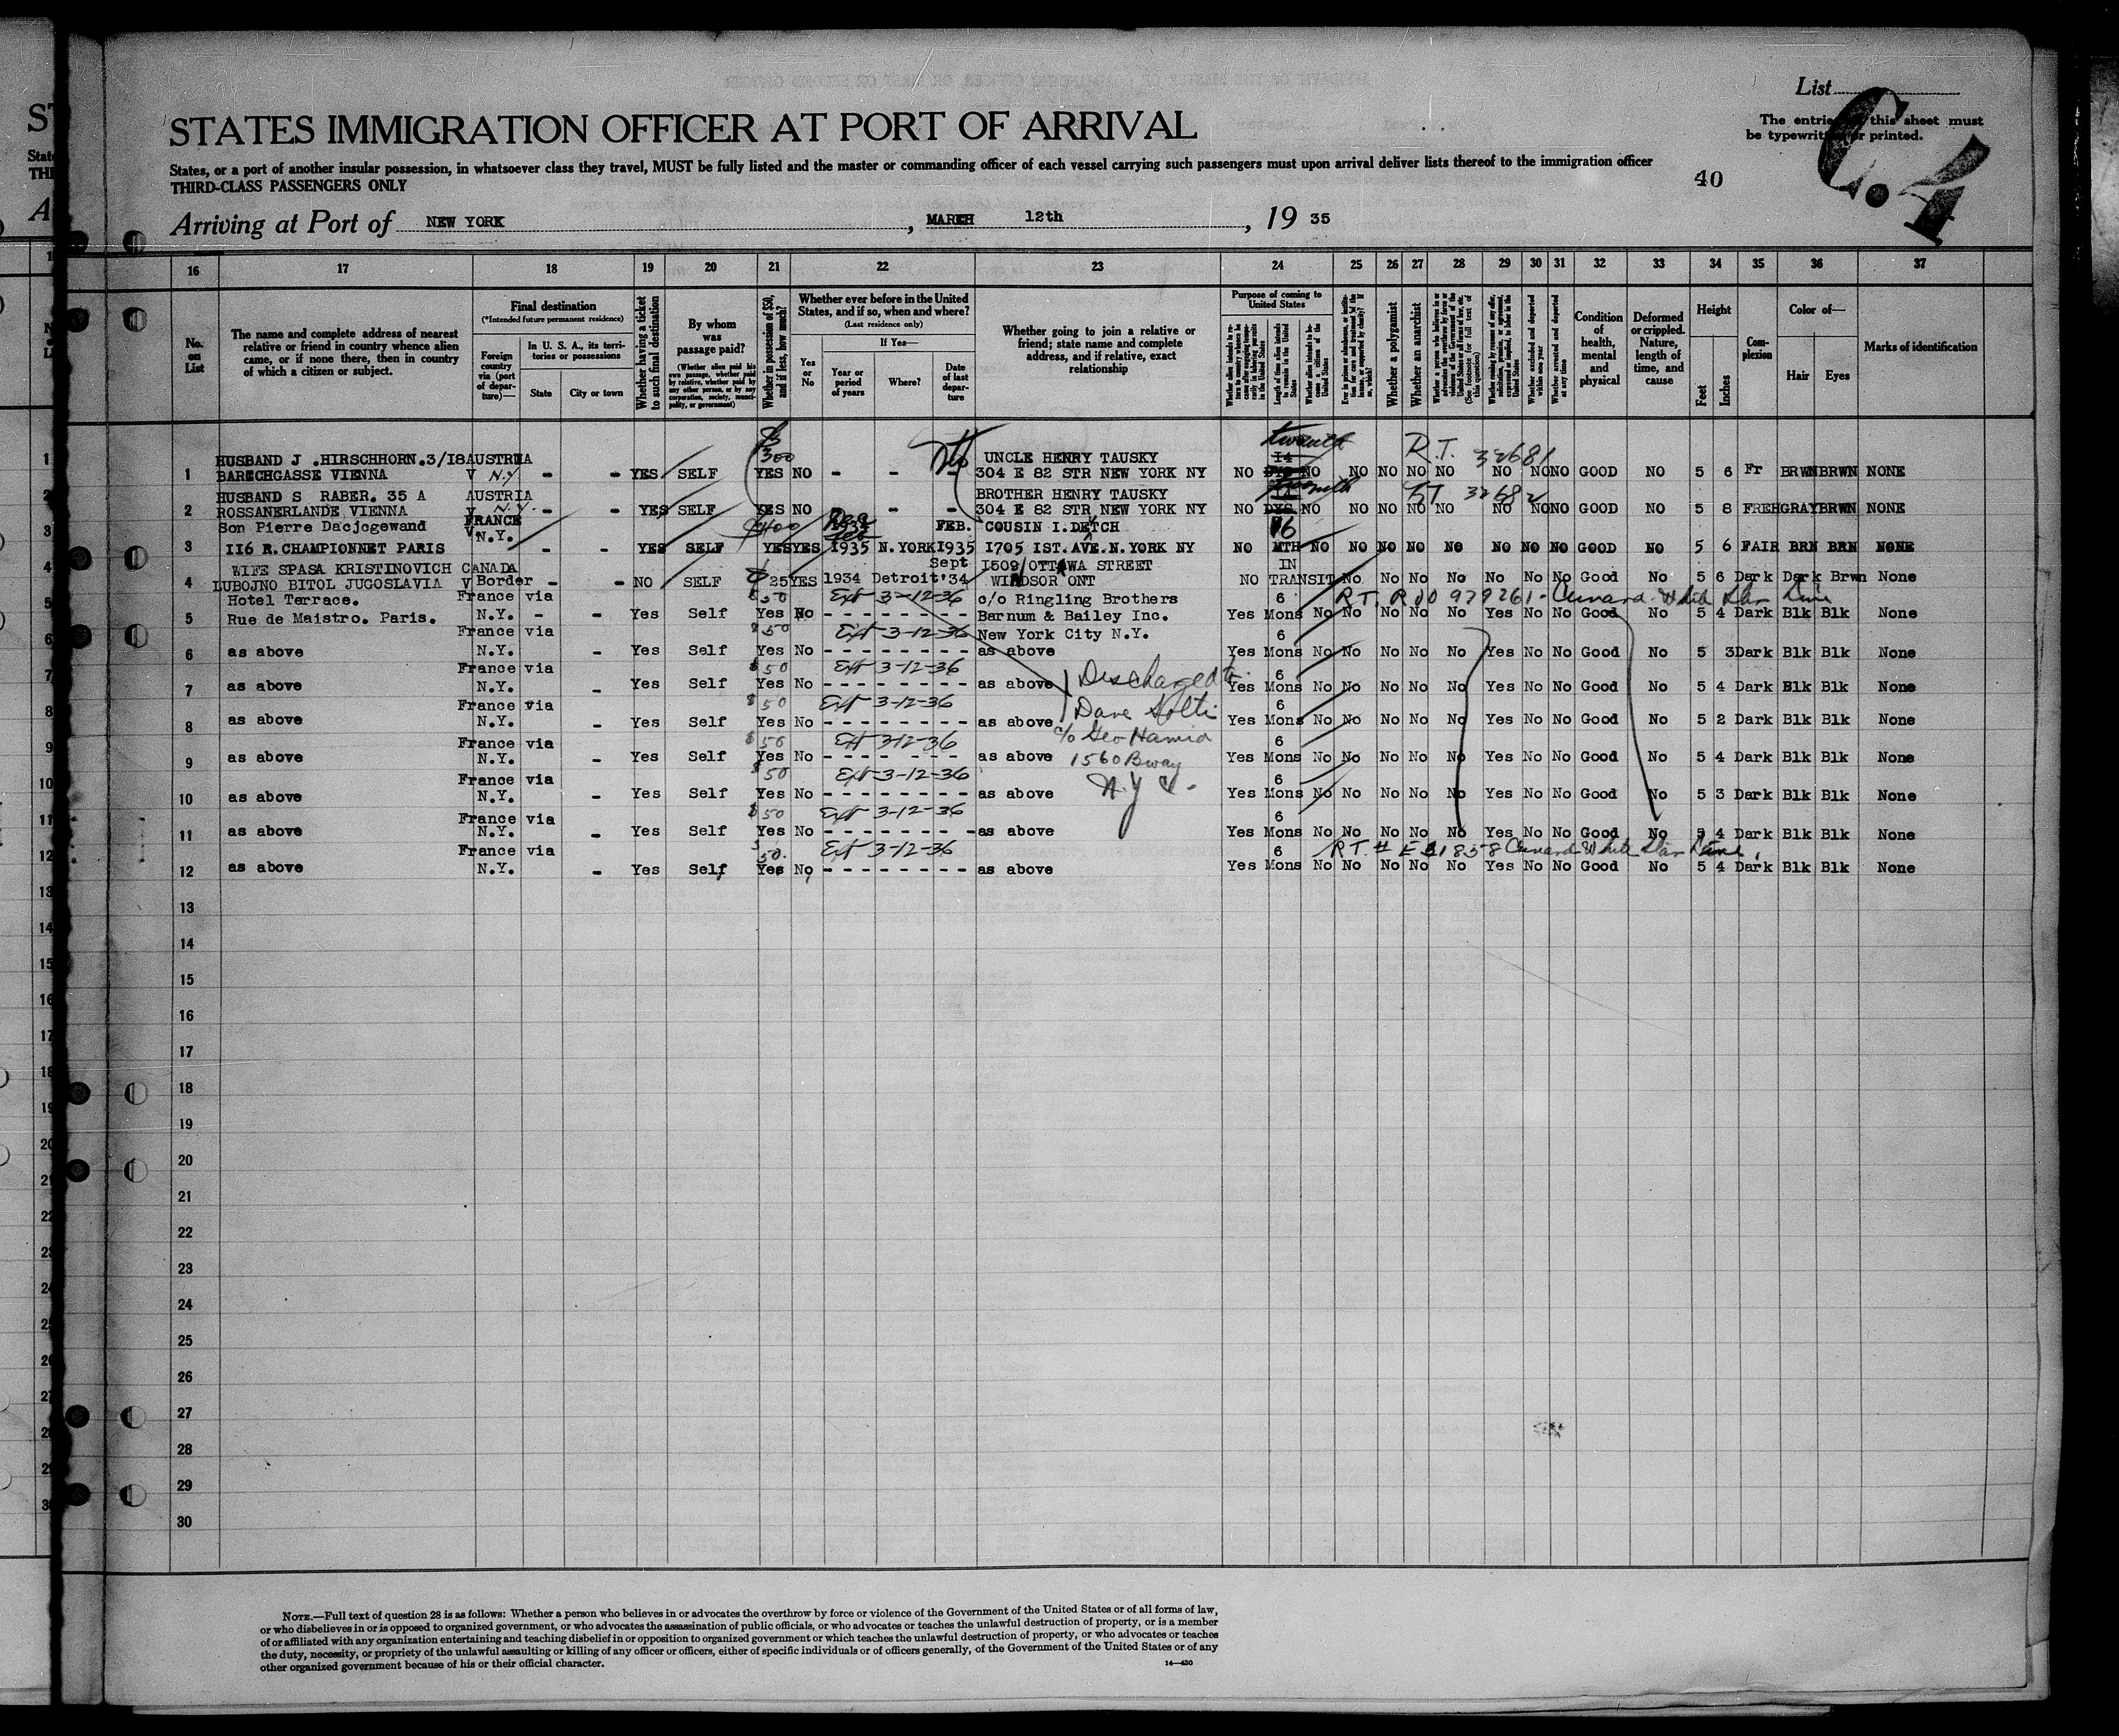 List
The entries this sheet must
be typewritten or printed.
C. 4
STATES IMMIGRATION OFFICER AT PORT OF ARRIVAL
States, or a port of another insular possession, in whatsoever class they travel, MUST be fully listed and the master or commanding officer of each vessel carrying such passengers must upon arrival deliver lists thereof to the immigration officer
THIRD-CLASS PASSENGERS ONLY
40
Arriving at Port of NEW YORK , MARCH 12th , 19 35
16 17 18 19 20 21 22 23 24 25 26 27 28 29 30 31 32 33 34 35 36 37
No. on List
The name and complete address of nearest relative or friend in country whence alien came, or if none there, then in country of which a citizen or subject.
Final destination
(*Intended future permanent residence)
Foreign country via (port of departure)—
In U. S. A., its territories or possessions
State
City or town
Whether having a ticket to such final destination
By whom was passage paid?
(Whether alien paid his own passage, whether paid by relative, whether paid by any other person, or by any corporation, society, municipality, or government)
Whether in possession of $50, and if less, how much?
Whether ever before in the United States, and if so, when and where?
(Last residence only)
Yes or No
If Yes—
Year or period of years
Where?
Date of last departure
Whether going to join a relative or friend; state name and complete address, and if relative, exact relationship
Purpose of coming to United States
Length of time alien intends to remain in the United States
Whether alien intends to become a citizen of the United States
Whether a polygamist
Whether an anarchist
Whether excluded and deported within one year
Whether arrested and deported at any time
Condition of health, mental and physical
Deformed or crippled. Nature, length of time, and cause
Height
Feet
Inches
Complexion
Color of—
Hair
Eyes
Marks of identification
$300 twomth R.T. 32681
HUSBAND J .HIRSCHHORN.3/18 AUSTRIA UNCLE HENRY TAUSKY 14
1 BARICHGASSE VIENNA V N.Y - - YES SELF YES NO - - - 304 E 82 STR NEW YORK NY NO DYS NO NO NO NO NO NO NO NO GOOD NO 5 6 Fr BRWN BRWN NONE
HUSBAND S RABER. 35 A AUSTRIA BROTHER HENRY TAUSKY twomth RT 32682
2 ROSSANERLANDE VIENNA V N.Y. YES SELF YES NO - - 304 E 82 STR NEW YORK NY NO DYS NO NO NO NO NO NO NO NO GOOD NO 5 8 FREH GRAY BRWN NONE
Son Pierre Dacjogewand FRANCE $400 Dec 1933 Feb FEB. COUSIN I.DETCH 6
3 116 R.CHAMPIONNET PARIS V N.Y. - - YES SELF YES YES 1935 N.YORK 1935 1705 IST.AVE.N.YORK NY NO MTH NO NO NO NO NO NO NO NO GOOD NO 5 6 FAIR BRN BRN NONE
WIFE SPASA KRISTINOVICH CANADA Sept 1509 OTTAWA STREET IN
4 LUBOJNO BITOL JUGOSLAVIA V Border - - NO SELF $25 YES 1934 Detroit '34 WINDSOR ONT NO TRANSIT No No No No No No No Good No 5 6 Dark Dark Brwn None
Hotel Terrace. France via $50 Ext 3-12-36 c/o Ringling Brothers 6 R.T. R00 979261 - Cunard White Star Line
5 Rue de Maistro. Paris. N.Y. - - Yes Self Yes No - - - - - - - - Barnum & Bailey Inc. Yes Mons No No No No No Yes No No Good No 5 4 Dark Blk Blk None
France via $50 Ext 3-12-36 New York City N.Y. 6
6 as above N.Y. - Yes Self Yes No - - - - - - - - as above Yes Mons No No No No No Yes No No Good No 5 3 Dark Blk Blk None
France via $50 Ext 3-12-36 6
7 as above N.Y. - Yes Self Yes No - - - - - - - - as above Yes Mons No No No No No Yes No No Good No 5 4 Dark Blk Blk None
Discharged to
France via $50 Ext 3-12-36 6
8 as above N.Y. - Yes Self Yes No - - - - - - - - as above Yes Mons No No No No No Yes No No Good No 5 2 Dark Blk Blk None
Dave Solti
c/o Geo Hamid
France via $50 Ext 3-12-36 6
9 as above N.Y. - Yes Self Yes No - - - - - - - - as above Yes Mons No No No No No Yes No No Good No 5 4 Dark Blk Blk None
1560 Bway
N.Y C -
France via $50 Ext 3-12-36 6
10 as above N.Y. - Yes Self Yes No - - - - - - - - as above Yes Mons No No No No No Yes No No Good No 5 3 Dark Blk Blk None
France via $50 Ext 3-12-36 6
11 as above N.Y. - Yes Self Yes No - - - - - - - - as above Yes Mons No No No No No Yes No No Good No 5 4 Dark Blk Blk None
France via $50. Ext 3-12-36 6 R.T. # Cunard White Star Line
12 as above N.Y. - Yes Self Yes No - - - - - - - - as above Yes Mons No No No No No Yes No No Good No 5 4 Dark Blk Blk None
13
14
15
16
17
18
19
20
21
22
23
24
25
26
27
28
29
30
NOTE.—Full text of question 28 is as follows: Whether a person who believes in or advocates the overthrow by force or violence of the Government of the United States or of all forms of law,
or who disbelieves in or is opposed to organized government, or who advocates the assassination of public officials, or who advocates or teaches the unlawful destruction of property, or is a member
of or affiliated with any organization entertaining and teaching disbelief in or opposition to organized government or which teaches the unlawful destruction of property, or who advocates or teaches
the duty, necessity, or propriety of the unlawful assaulting or killing of any officer or officers, either of specific individuals or of officers generally, of the Government of the United States or of any
other organized government because of his or their official character.
14—430